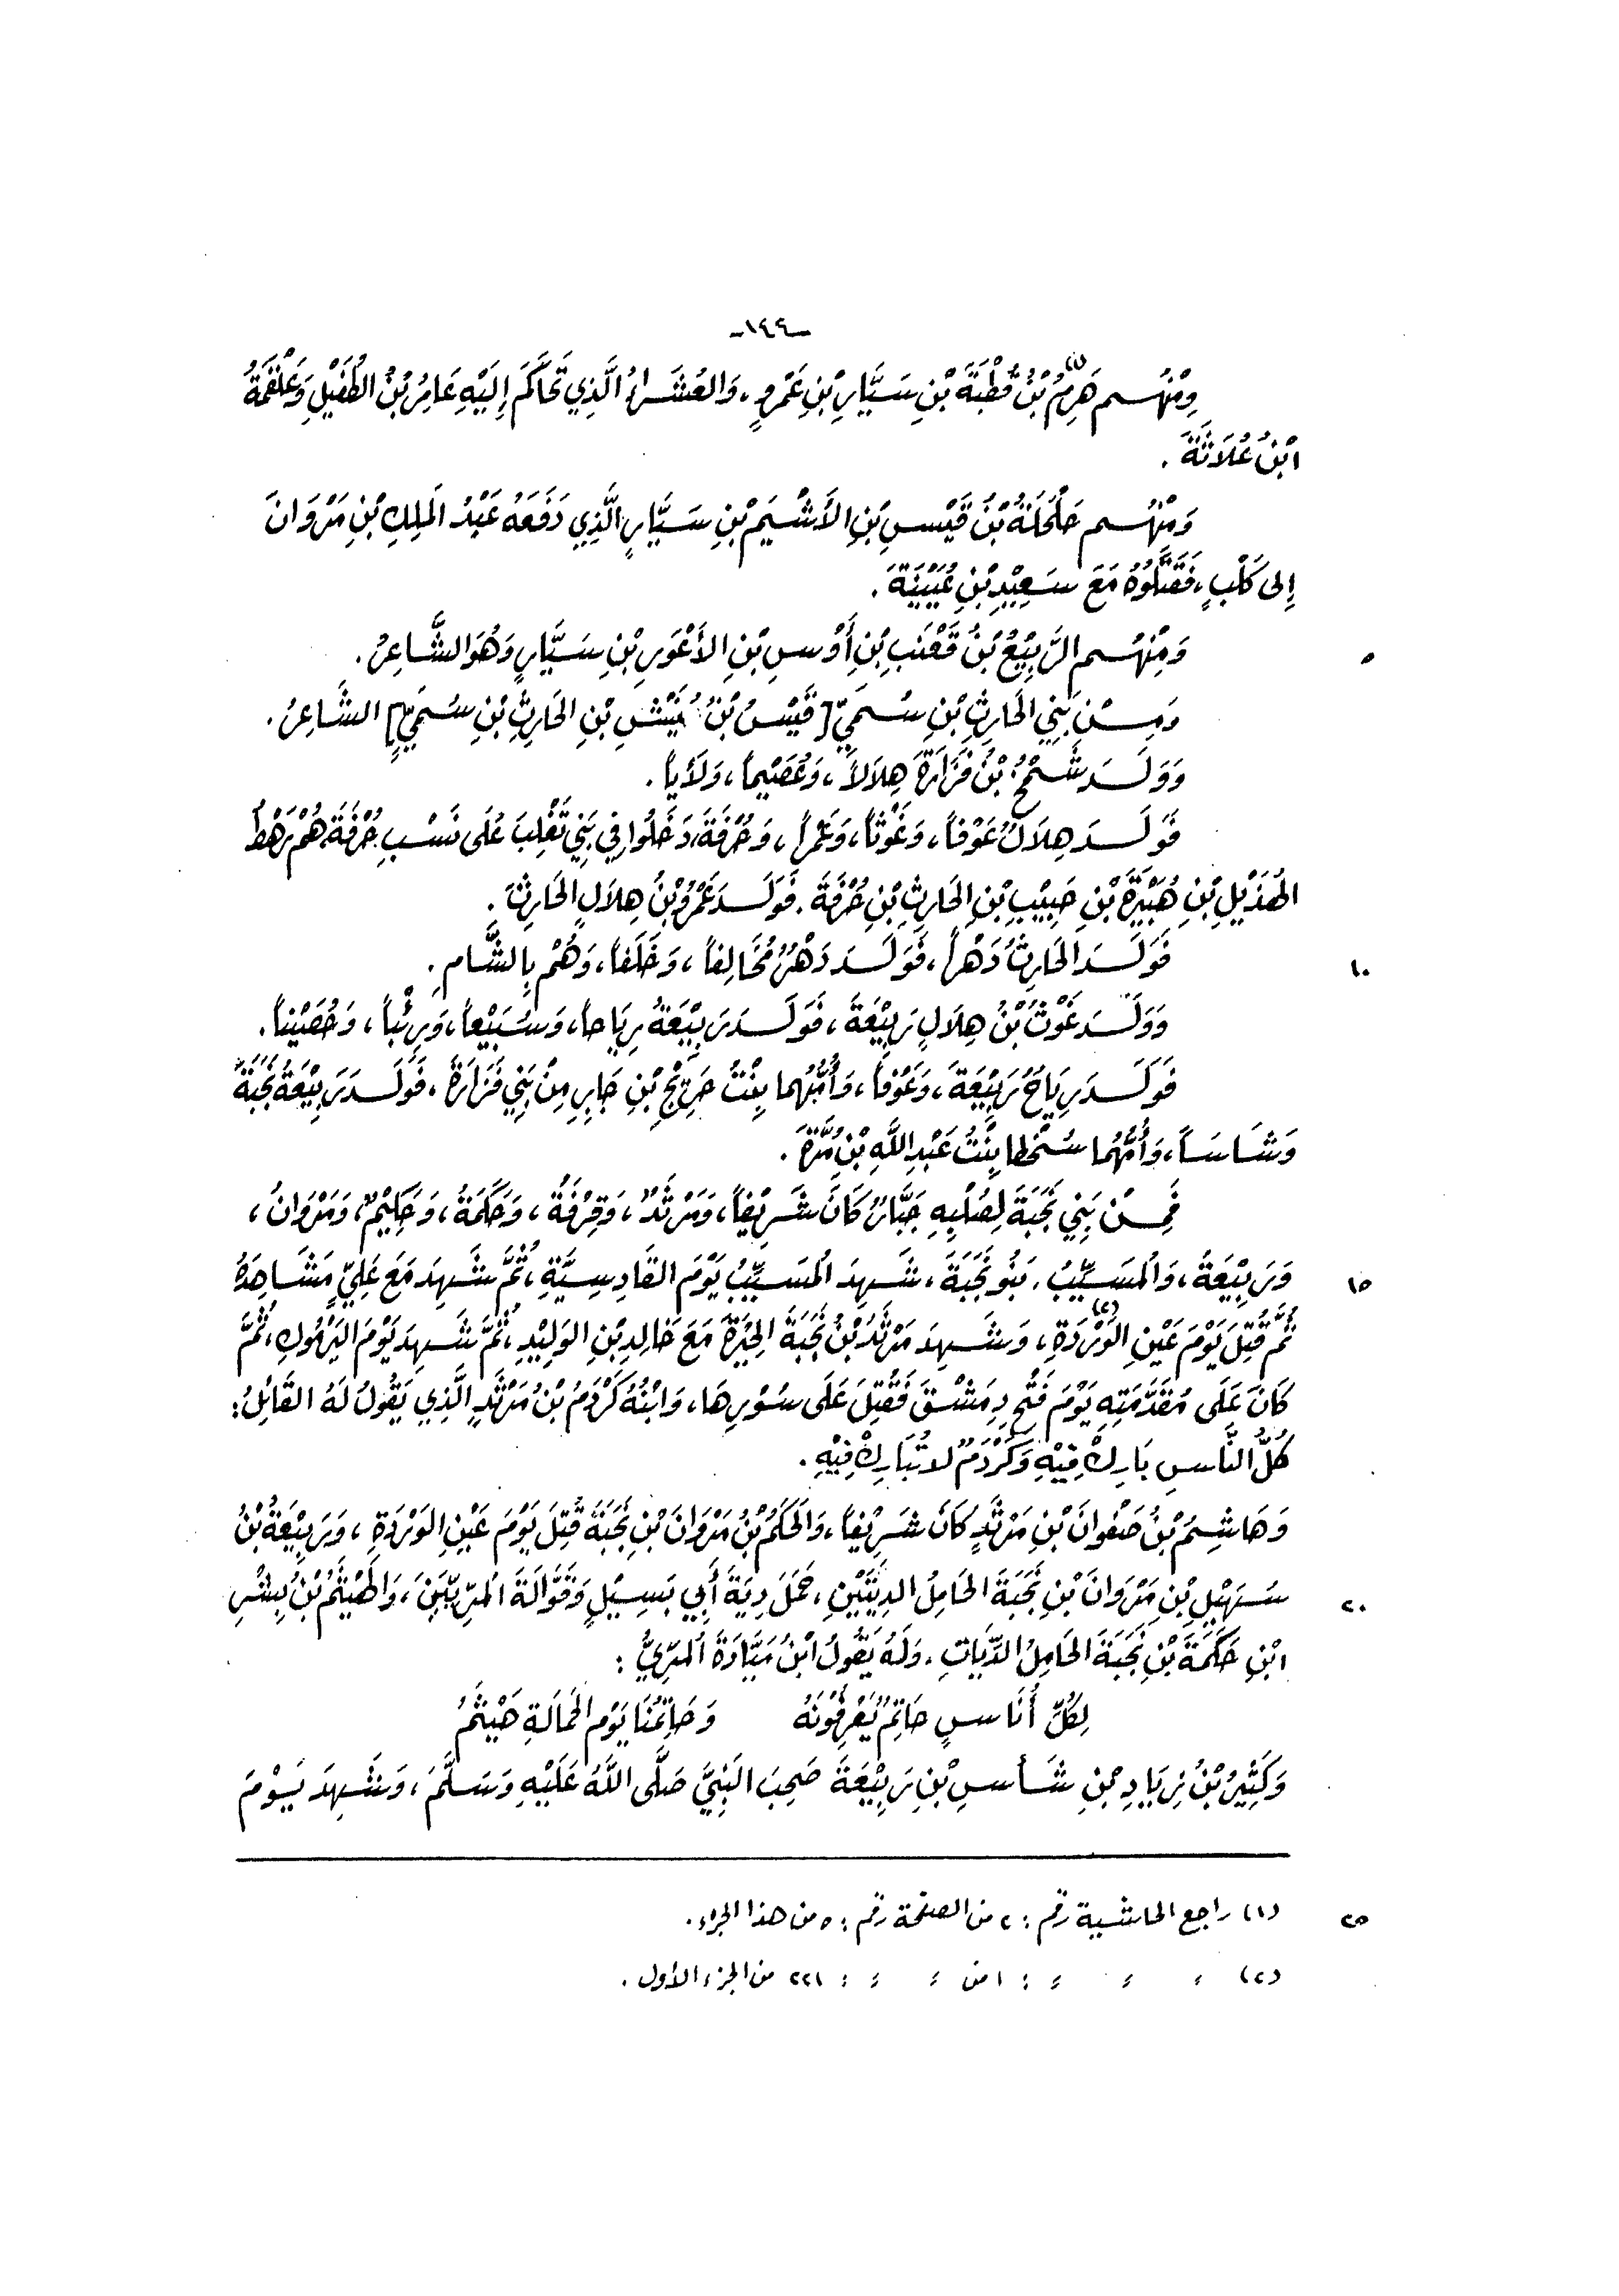 -١٤٤-
وَمِنْهُم هَرِمُ(١) بْنُ قُطْبَةَ بْنِ سَيَّارِ بْنِ عَمْرٍو، وَالعُشَرَاءُ الَّذِي تَحَاكَمَ إِلَيْهِ عَامِرُ بْنُ الطُّفَيْلِ وَعَلْقَمَةُ
ابْنُ عُلَاثَةَ .
وَمِنْهُم حَلْحَلَةُ بْنُ قَيْسِ بْنِ الأَشْيَمِ بْنِ سَيَّارٍ الَّذِي دَفَعَهُ عَبْدُ المَلِكِ بْنِ مَرْوَانَ
إِلى كَلْبٍ، فَقَتَلُوهُ مَعَ سَعِيْدِ بْنِ عُيَيْنَةَ .
٥ وَمِنْهُم الرَّبِيْعُ بْنُ قَعْنَبِ بْنِ أَوْسِ بْنِ الأَعْوَرِ بْنِ سَيَّارٍ وَهُوَ الشَّاعِرُ .
وَمِنْ بَنِي الحَارِثِ بْنِ سُمَيٍّ [قَيْسُ بْنُ بْنِ الحَارِثِ بْنِ سُمَيٍّ] الشَّاعِرُ .
وَوَلَدَ شَمْخُ بْنُ فَزَارَةَ هِلَالاً، وَعُصَيْماً، وَلَأْياً .
فَوَلَدَ هِلَالٌ عَوْفاً، وَغَوْثاً، وَعَمْراً، وَحُرْفَةَ، دَخَلُوا فِي بَنِي تَغْلِبَ عَلَى نَسَبِ حُرْفَةَ، هُمْ رَهْطُ
الهُذَيْلِ بْنِ هُبَيْرَةَ بْنِ حَبِيْبِ بْنِ الحَارِثِ بْنِ حُرْفَةَ . فَوَلَدَ عَمْرُو بْنُ هِلَالٍ الحَارِثَ .
١٠ فَوَلَدَ الحَارِثُ دَهْراً، فَوَلَدَ دَهْرٌ مُخَالِفاً، وَخَلَفاً، وَهُمْ بِالشَّامِ .
وَوَلَدَ غَوْثُ بْنُ هِلَالٍ رَبِيْعَةَ، فَوَلَدَ رَبِيْعَةُ رِيَاحاً، وَسُبَيْعاً، وَرِئْباً، وَحُصَيْناً .
فَوَلَدَ رِيَاحٌ رَبِيْعَةَ، وَعَوْفاً، وَأُمُّهُما بِنْتُ جُرَيْجِ بْنِ جَابِرٍ مِنْ بَنِي فَزَارَةَ، فَوَلَدَ رَبِيْعَةُ نَجَبَةَ
وَشَاسَاً، وَأُمُّهُما سُخْطا بِنْتُ عَبْدِ اللَّهِ بْنِ مُرَّةَ .
فَمِنْ بَنِي نَجَبَةَ لِصُلْبِهِ جَبَّارٌ كَانَ شَرِيْفاً، وَمَرْثَدٌ، وَقِرْفَةُ، وَحَكَمَةُ، وَحَكِيْمٌ، وَمَرْوَانُ،
١٥ وَرَبِيْعَةُ، وَالمُسَيِّبُ . بَنُو نَجَبَةَ، شَهِدَ المُسَيِّبُ يَوْمَ القَادِسِيَّةِ، ثُمَّ شَهِدَ مَعَ عَلِيٍّ مَشَاهِدَهُ
ثُمَّ قُتِلَ يَوْمَ عَيْنِ الوَرْدَةِ(٢)، وَشَهِدَ مَرْثَدُ بْنُ نَجَبَةَ الحِيْرَةَ مَعَ خَالِدِ بْنِ الوَلِيْدِ، ثُمَّ شَهِدَ يَوْمَ اليَرْمُوكِ، ثُمَّ
كَانَ عَلَى مُقَدَّمَتِهِ يَوْمَ فَتْحِ دِمَشْقَ فَقُتِلَ عَلَى سُوْرِهَا، وَابْنُهُ كَرْدَمُ بْنُ مَرْثَدٍ الَّذِي يَقُولُ لَهُ القَائِلُ:
كُلُّ النَّاسِ بَارِكْ فِيْهِ وَكَرْدَمٌ لا تُبَارِكْ فِيْهِ .
وَهَاشِمُ بْنُ صَفْوَانَ بْنِ مَرْثَدٍ كَانَ شَرِيْفاً، وَالحَكَمُ بْنُ مَرْوَانَ بْنِ نَجَبَةَ قُتِلَ يَوْمَ عَيْنِ الوَرْدَةِ، وَرَبِيْعَةُ بْنُ
٢٠ سَهْلِ بْنِ مَرْوَانَ بْنِ نَجَبَةَ الحَامِلُ الدِيَتَيْنِ، حَمَلَ دِيَةَ أَبِي بَسِيْلٍ وَقَوَّالَةَ المُرِّيّيْنَ، وَالهَيْثَمُ بْنُ بِشْرِ
ابْنِ حَكَمَةَ بْنِ نَجَبَةَ الحَامِلُ الدِّيَاتِ . وَلَهُ يَقُولُ ابْنُ مَيَّادَةَ المُرِّيُّ :
لِكُلِّ أُنَاسٍ حَاتِمٌ يَعْرِفُونَهُ وَحَاتِمُنَا يَوْمَ الحَمَالَةِ هَيْثَمُ
وَكَثِيْرُ بْنُ زِيَادِ بْنِ شَأْسِ بْنِ رَبِيْعَةَ صَحِبَ النَبِيَّ صَلَّى اللَّهُ عَلَيْهِ وَسَلَّمَ، وَشَهِدَ يَوْمَ
٢٥ (١) راجع الحاشية رقم : ٢ من الصفحة رقم : ٥ من هذا الجزء .
(٢) ؛ ؛ ؛ : ١ من ؛ ؛ : ٢٢١ من الجزء الأول .